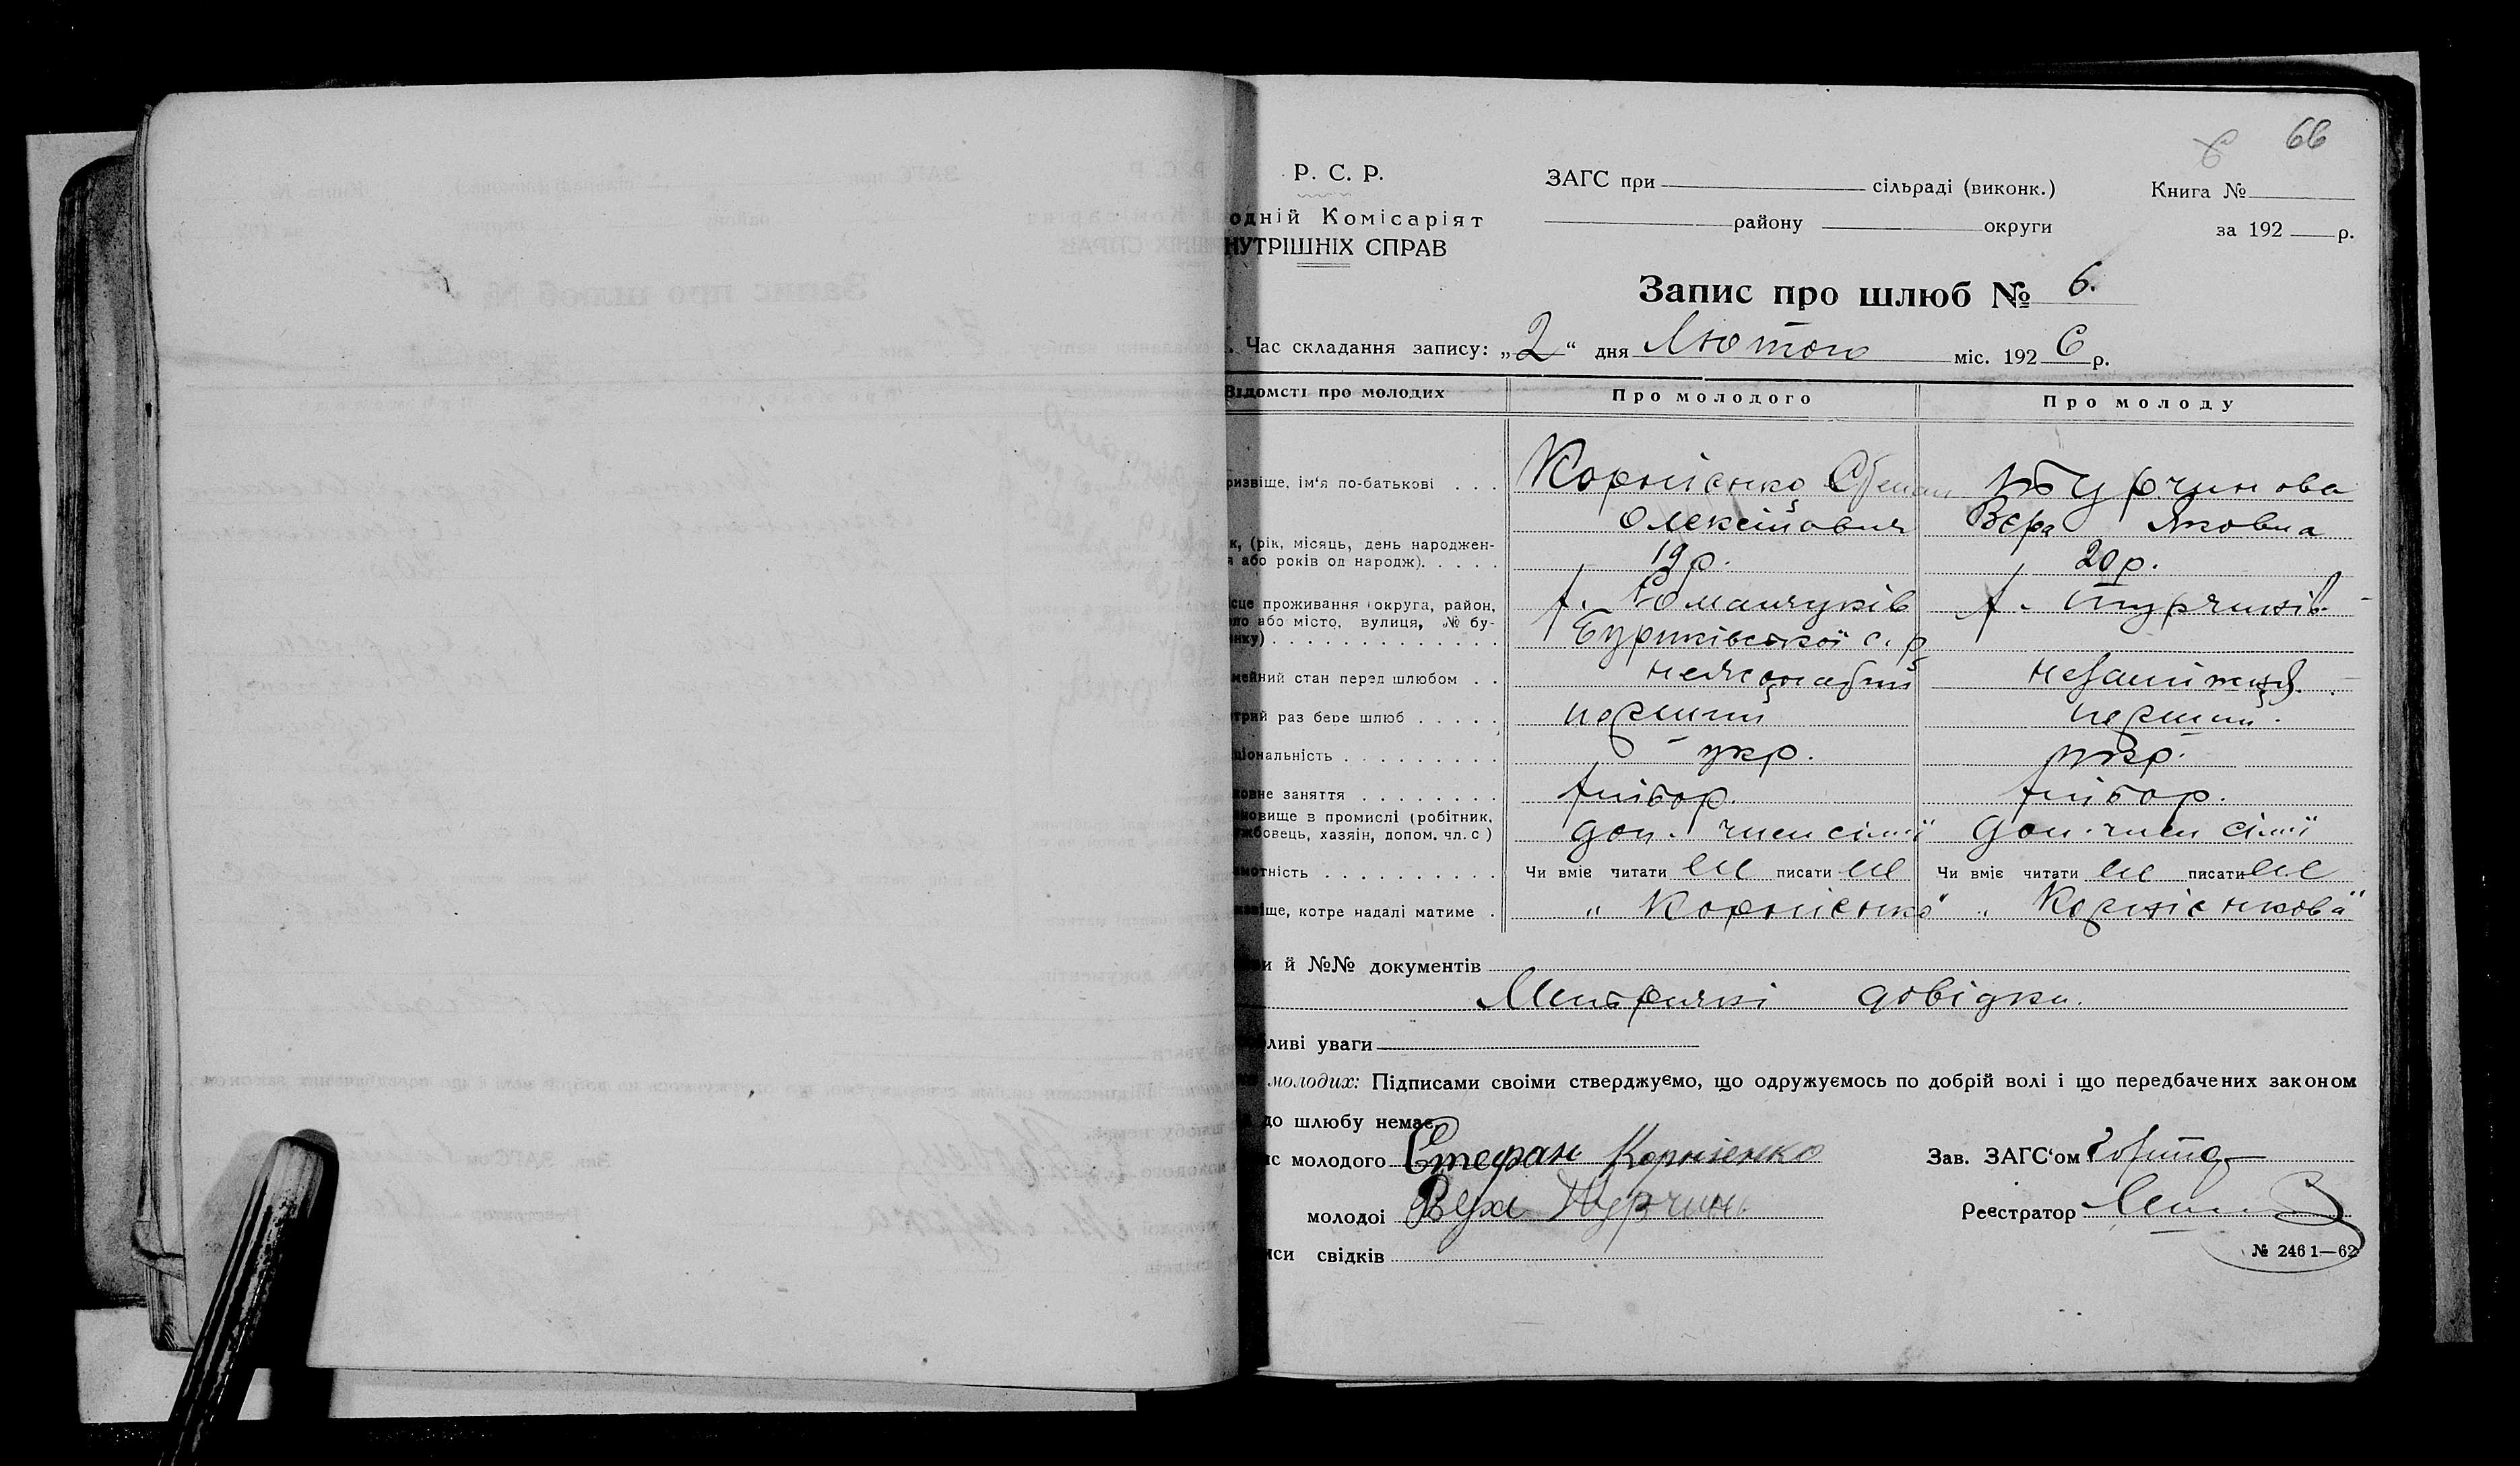 66
6
Р. С. Р.
одній Комісаріят
НУТРІШНІХ СПРАВ
ЗАГС при сільраді (виконк.)
району округи
Книга №
за 192 р.
Запис про шлюб № 6.
Час складання запису: „2“ дня Лютого міс. 1926 р.
Відомсті про молодих Про молодого Про молоду
ризвіще, ім'я по-батькові . . . Корнієнко Степан Турчинова
Олексійович Вєра Яковна
к, (рік, місяць, день народжен-
я або років од народж). . . . . 19 р. 20 р.
сце проживання (округа, район, х. Романчуків х. Турчинів
ло або місто, вулиця, № бу-
инку) . . . . . . . . . . . . . с. р.
мейний стан перед шлюбом . . нежонатий незаміжня
отрий раз бере шлюб . . . . . перший перший.
ціональність . . . . . . . . . укр. укр.
ковне заняття . . . . . . . . хлібор. хлібор.
новище в промислі (робітник,
жбовець, хазяін, допом. чл. с ) доп. член сімї доп. член сімї
амотність . . . . . . . . . . Чи вміє читати писати Чи вміє читати писати
звіще, котре надалі матиме . „Корнієнко“ „Корнієнкова“
и й №№ документів
Метричні довідки.
ливі уваги
молодих: Підписами своіми стверджуємо, що одружуємось по добрій волі і що передбачених законом
до шлюбу немає.
ис молодого Стефан Корнієнко Зав. ЗАГС‘ом
молодоі Вера Турчин Реєстратор
иси свідків
№ 2461—62